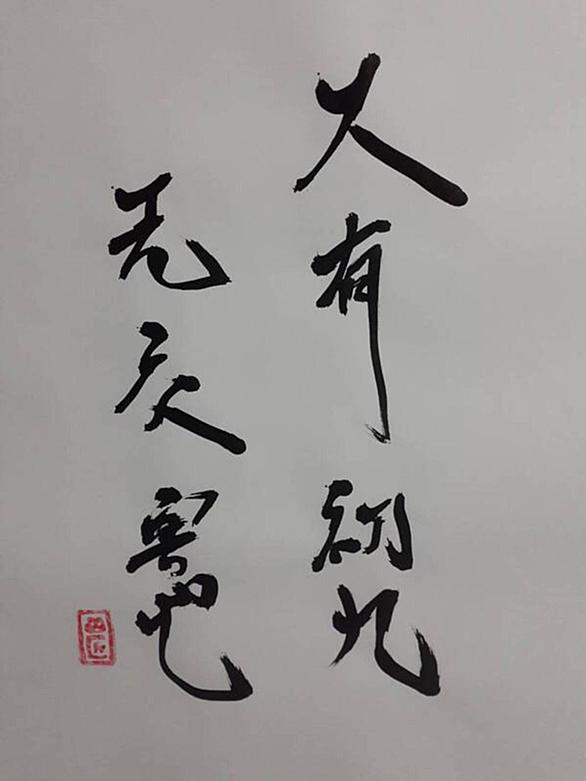 大有初九
无交害也